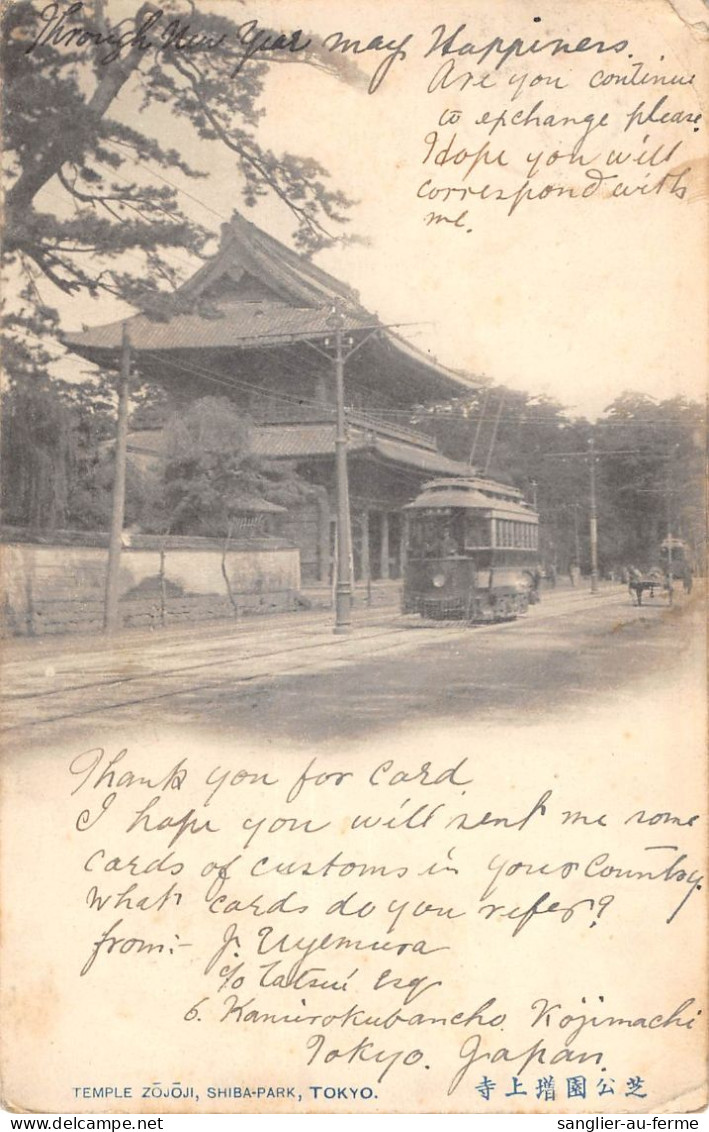 Through New Year may Happiness.
Are you continue
to exchange please.
Hope you will
correspond with
me.
Thank you for Card.
I hope you will sent me some
cards of customs in your Country.
What cards do you refer?
from:- J. Uyemura
c/o Tatsui Esq
6. Kamirokubancho. Kojimachi
Tokyo. Japan.
TEMPLE ZŌJŌJI, SHIBA-PARK, TOKYO.
寺上增園公芝
sanglier-au-ferme